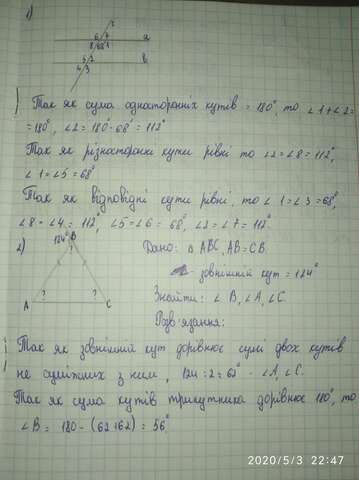 1)
с
6 7
a
8 68° 1
5 2
b
4 3
Так як сума односторонніх кутів = 180°, то ∠1+∠2=
=180°, ∠2= 180°-68° = 112°
Так як різносторонні кути рівні то ∠2=∠8=112°,
∠1=∠5=68°
Так як відповідні кути рівні, то ∠1=∠3=68°,
∠8=∠4= 112°, ∠5=∠6= 68°, ∠2=∠7= 112°.
2)
124° B
Дано: △ ABC, AB=CB.
зовнішній кут = 124°
?
Знайти: ∠ B, ∠A, ∠C.
? ?
A C
Розв'язання:
Так як зовнішній кут дорівнює сумі двох кутів
не суміжних з ним, 124:2=62° - ∠A, ∠C.
Так як сума кутів трикутника дорівнює 180°, то
∠B = 180-(62+62) = 56°
2020/5/3 22:47